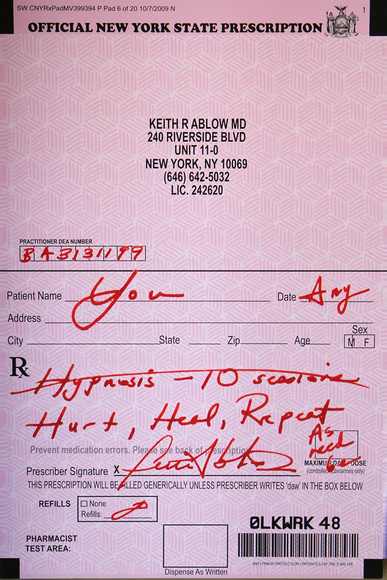 SW CNYRxPadMV399394 P Pad 6 of 20 10/7/2009 N
1
OFFICIAL NEW YORK STATE PRESCRIPTION
KEITH R ABLOW MD
240 RIVERSIDE BLVD
UNIT 11-0
NEW YORK, NY 10069
(646) 642-5032
LIC. 242620
PRACTITIONER DEA NUMBER
BA3131199
Patient Name You Date Any
Address
Sex
City State Zip Age M F
Rx Hypnosis - 10 sessions
Hurt, Heal, Repeat
As need
Prevent medication errors. Please see back of prescription.
MAXIMUM DAILY DOSE
(controlled substances only)
Prescriber Signature X
THIS PRESCRIPTION WILL BE FILLED GENERICALLY UNLESS PRESCRIBER WRITES 'daw' IN THE BOX BELOW
REFILLS None
Refills:
PHARMACIST
TEST AREA:
0LKWRK 48
Dispense As Written